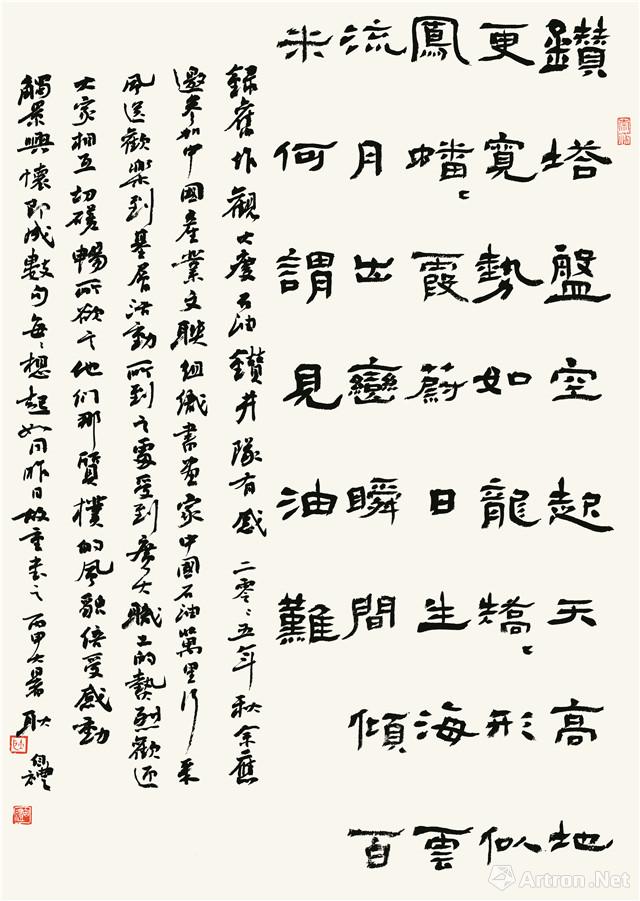 鑽塔盤空起天高地
更寬勢如龍矯〻形似
鳳蟠〻霞蔚日生海雲
流月出巒瞬間傾百
米何謂見油難
錄舊作觀大慶石油鑽井隊有感 二零〻五年秋余應
邀參加中國產業文聯組織書畫家中國石油萬里行采
風送歡樂到基層活動所到之處受到廣大職工的熱烈歡迎
大家相互切磋暢所欲言他们那質樸的風貌倍受感動
觸景興懷即成數句每〻想起如同昨日故重書之 丙申大暑 耿自禮
Artron.Net